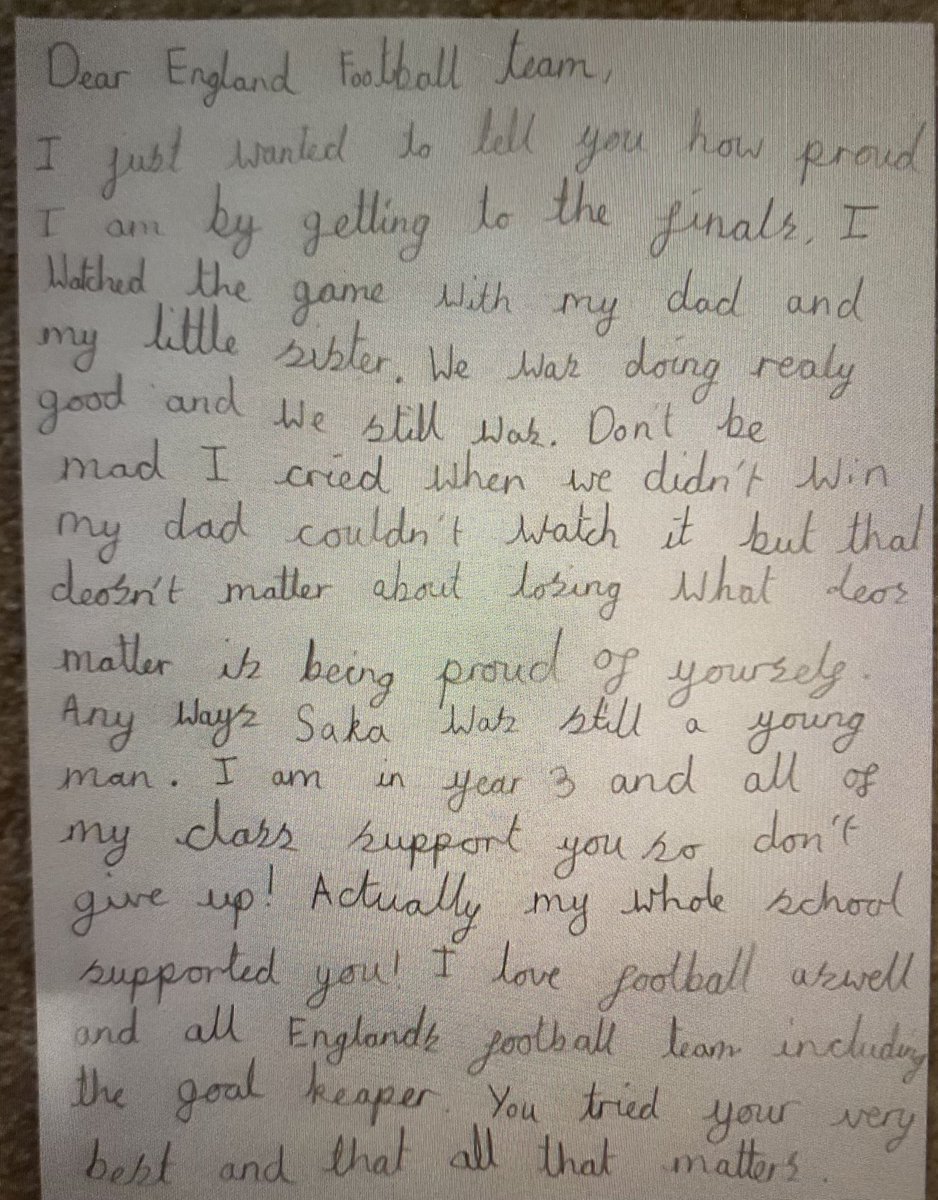 Dear England Football team,
I just wanted to tell you how proud
I am by getting to the finals. I
Watched the game with my dad and
my little sister. We was doing realy
good and we still was. Don't be
mad I cried when we didn't win
my dad couldn't watch it but that
deosn't matter about losing what deos
matter is being proud of yourself.
Any ways Saka was still a young
man. I am in year 3 and all of
my class support you so don't
give up! Actually my whole school
supported you! I love football aswell
and all Englands football team including
the goal keaper. You tried your very
best and that all that matters.